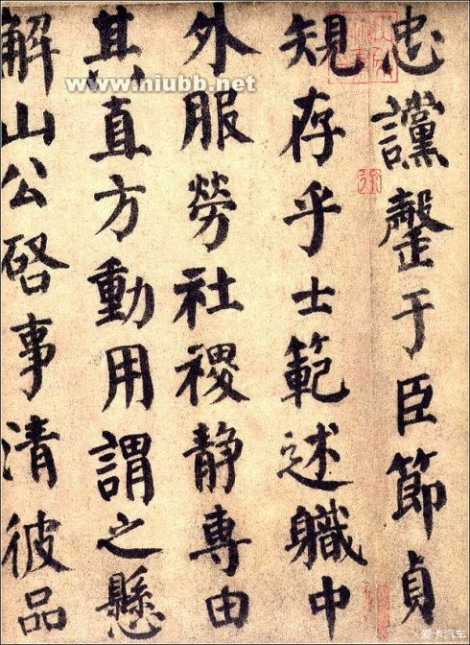 忠讜罄于臣節貞
規存乎士範述職中
外服勞社稷静專由
其直方動用謂之懸
解山公啓事清彼品
www.niubb.net
爱卡汽车